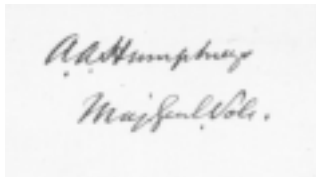 A.A. Humphreys
Maj Genl Vols.